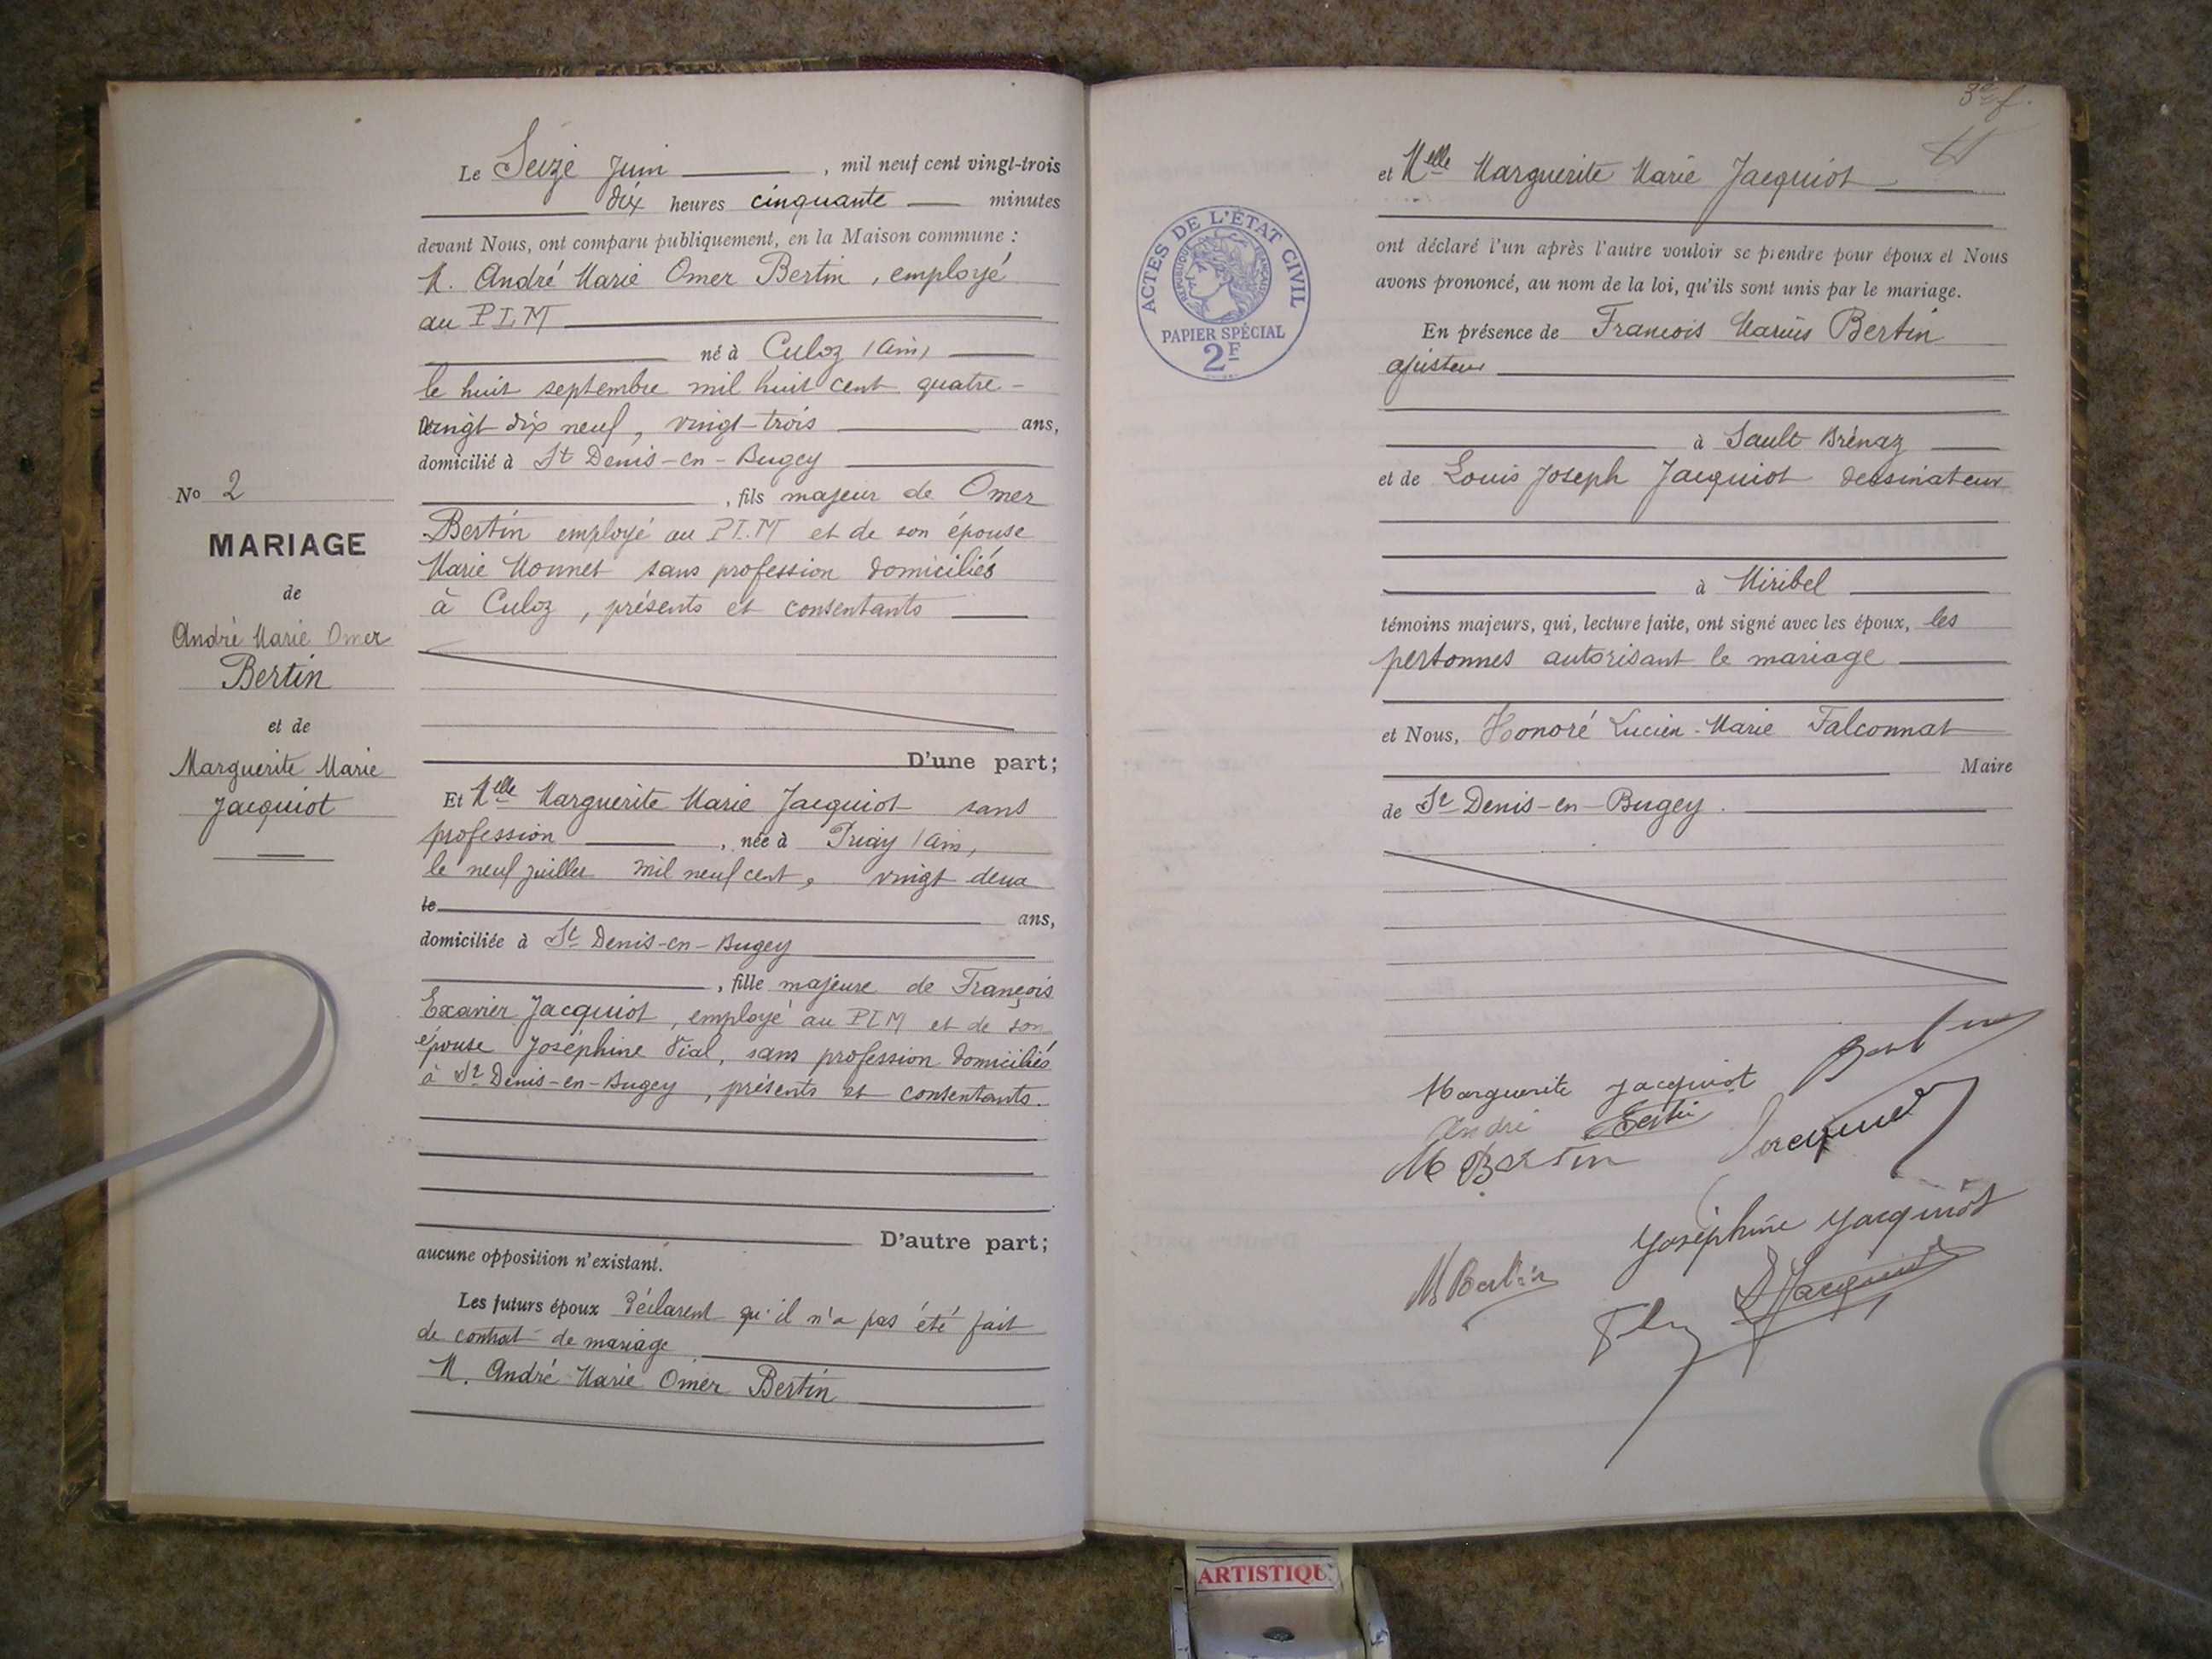 Le Seize Juin , mil neuf cent vingt-trois
dix heures cinquante minutes
devant Nous, ont comparu publiquement, en la Maison commune :
M. André Marie Omer Bertin, employé
au PLM
né à Culoz (Ain)
le huit septembre mil huit cent quatre-
vingt dix neuf, vingt-trois ans,
domicilié à St Denis-en-Bugey
, fils majeur de Omer
Bertin employé au PLM et de son épouse
Marie Monnet sans profession domiciliés
à Culoz, présents et consentants
D'une part;
No 2
MARIAGE
de
André Marie Omer
Bertin
et de
Marguerite Marie
Jacquiot
Et Melle Marguerite Marie Jacquiot sans
profession , née à Priay (Ain)
le neuf juillet mil neuf cent, vingt deux
ans,
domiciliée à St Denis-en-Bugey
, fille majeure de François
Exavier Jacquiot, employé au PLM et de son
épouse Joséphine Vial, sans profession domiciliés
à St Denis-en-Bugey, présents et consentants.
D'autre part;
aucune opposition n'existant.
Les futurs époux déclarent qu'il n'a pas été fait
de contrat de mariage
M. André Marie Omer Bertin
3e f.
et Melle Marguerite Marie Jacquiot
ont déclaré l'un après l'autre vouloir se prendre pour époux et Nous
avons prononcé, au nom de la loi, qu'ils sont unis par le mariage.
En présence de Francois Marius Bertin
ajusteur
à Sault Brénaz
et de Louis Joseph Jacquiot dessinateur
à Miribel
témoins majeurs, qui, lecture faite, ont signé avec les époux, les
personnes autorisant le mariage
et Nous, Honoré Lucien-Marie Falconnat
Maire
de St Denis-en-Bugey.
ACTES DE L'ÉTAT CIVIL
RÉPUBLIQUE FRANÇAISE
PAPIER SPÉCIAL
2F
Marguerite Jacquiot Bertin
André Bertin
M Bertin Jacquiot
Joséphine Jacquiot
M Bertin Jacquiot
ARTISTIQU